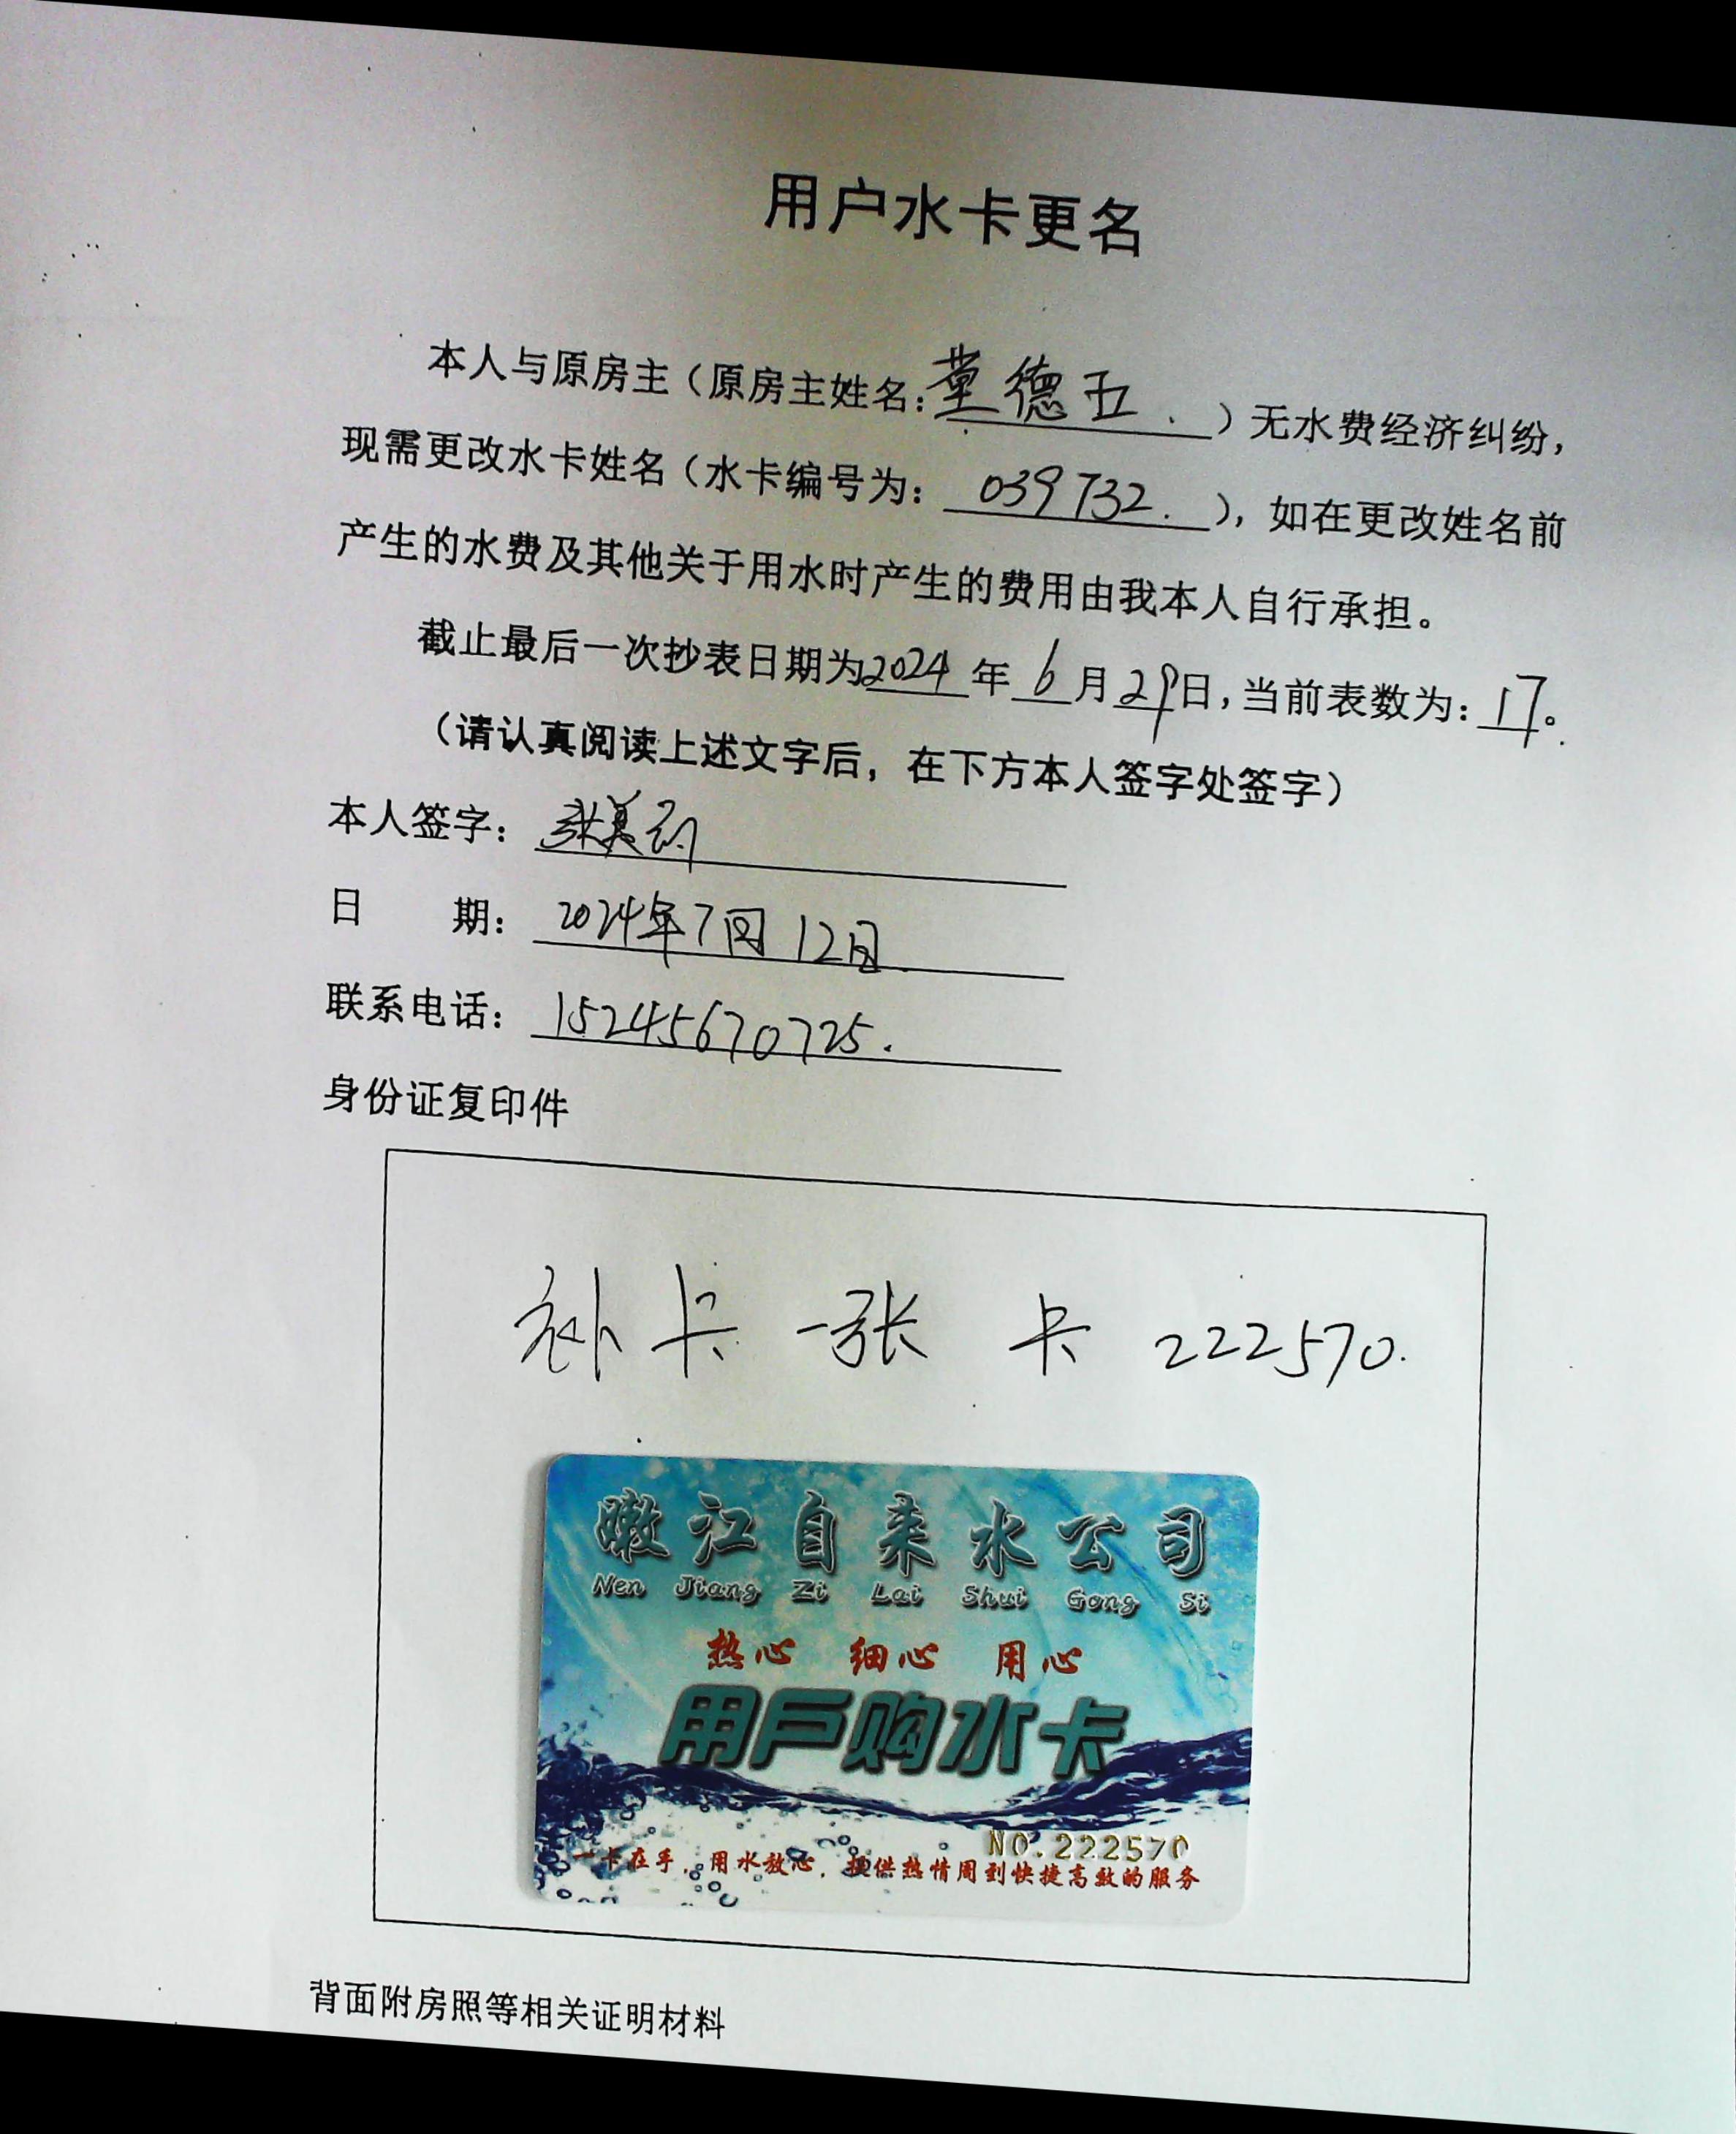 用户水卡更名
本人与原房主（原房主姓名：董德五.）无水费经济纠纷，
现需更改水卡姓名（水卡编号为：039732.），如在更改姓名前
产生的水费及其他关于用水时产生的费用由我本人自行承担。
截止最后一次抄表日期为2024年6月29日，当前表数为：17。
（请认真阅读上述文字后，在下方本人签字处签字）
本人签字：张美
日 期：2024年7月12日.
联系电话：15245670725.
身份证复印件
补卡一张 卡 222570.
嫩江自来水公司
Nen Jiang Zi Lai Shui Gong Si
热心 细心 用心
用户购水卡
NO.222570
一卡在手，用水放心，提供热情周到快捷高效的服务
背面附房照等相关证明材料